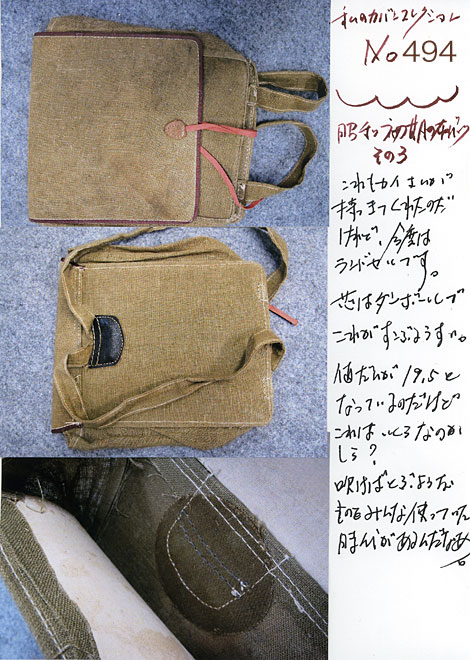 私のカバンコレクション
No 494
昭和初期の布カバン
その3
これもカイさんが
持ってきてくれたのだ
けれど、今度は
ランドセルです。
芯はダンボールで
これがすごくうすい。
値だんが19,5と
なっているのだけど
これはいくらなのか
しら？
吹けばとぶような
ものをみんな使っていた
時代があるんだなぁ